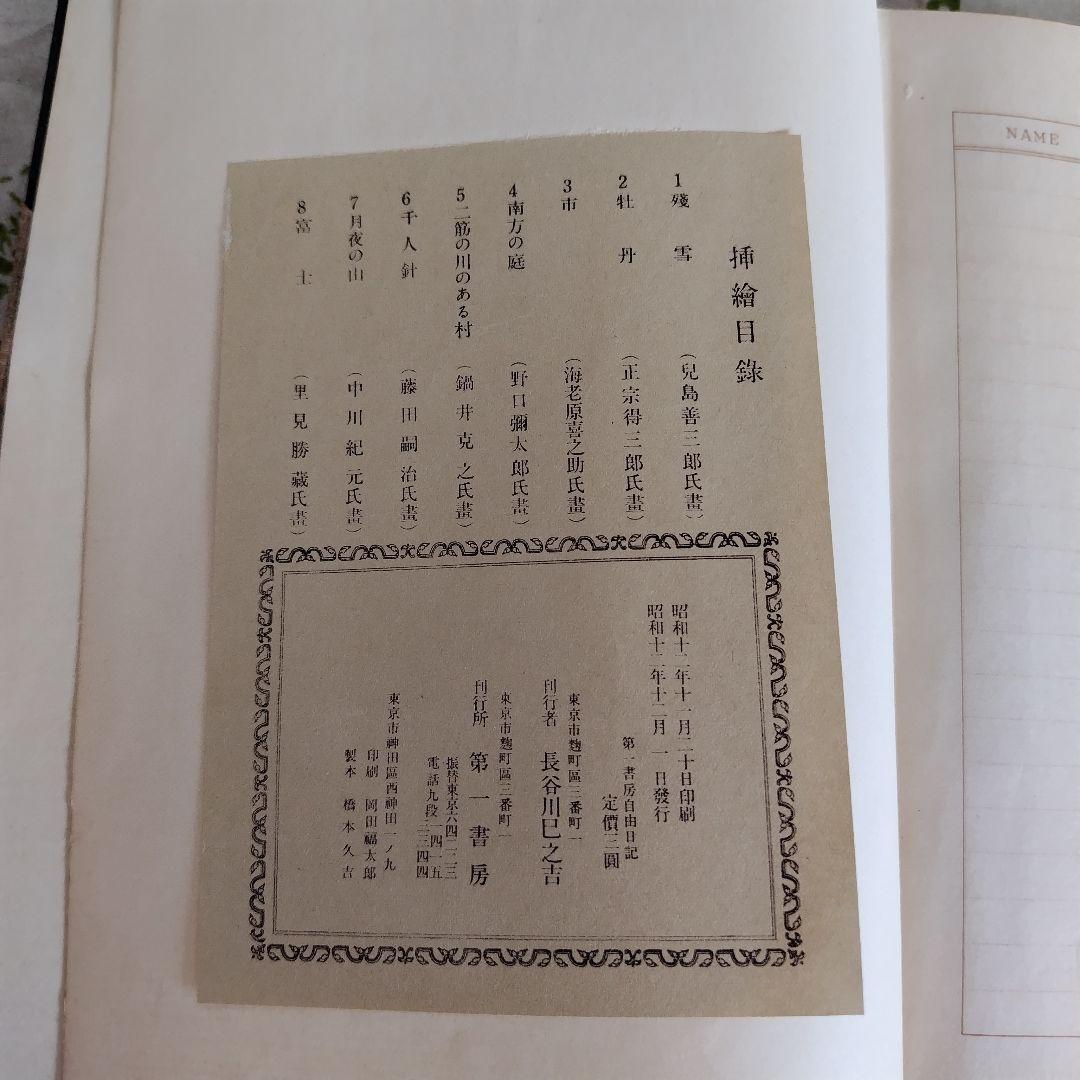 挿繪目錄
1 殘雪 （兒島善三郎氏畫）
2 牡丹 （正宗得三郎氏畫）
3 市 （海老原喜之助氏畫）
4 南方の庭 （野口彌太郎氏畫）
5 二筋の川のある村 （鍋井克之氏畫）
6 千人針 （藤田嗣治氏畫）
7 月夜の山 （中川紀元氏畫）
8 富士 （里見勝藏氏畫）
昭和十二年十一月二十日印刷
昭和十二年十二月一日發行
第一書房自由日記
定價三圓
東京市麴町區三番町一
刊行者 長谷川巳之吉
東京市麴町區三番町一
刊行所 第一書房
振替東京六四一二三
東京市神田區西神田一ノ九
印刷 岡田福太郎
製本 橋本久吉
NAME